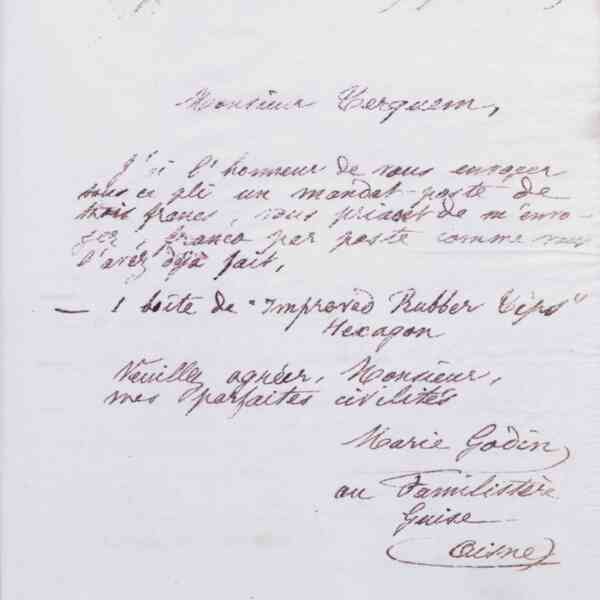 Monsieur Kerguem,
J'ai l'honneur de vous envoyer
sous ce pli un mandat-poste de
trois francs, vous priant de m'envo-
yer, franco par poste comme vous
l'avez déjà fait,
— 1 boîte de "Improved Rubber Tips"
Hexagon
Veuillez agréer, Monsieur,
mes parfaites civilités
Marie Godin
au Familistère
Guise
(Aisne)